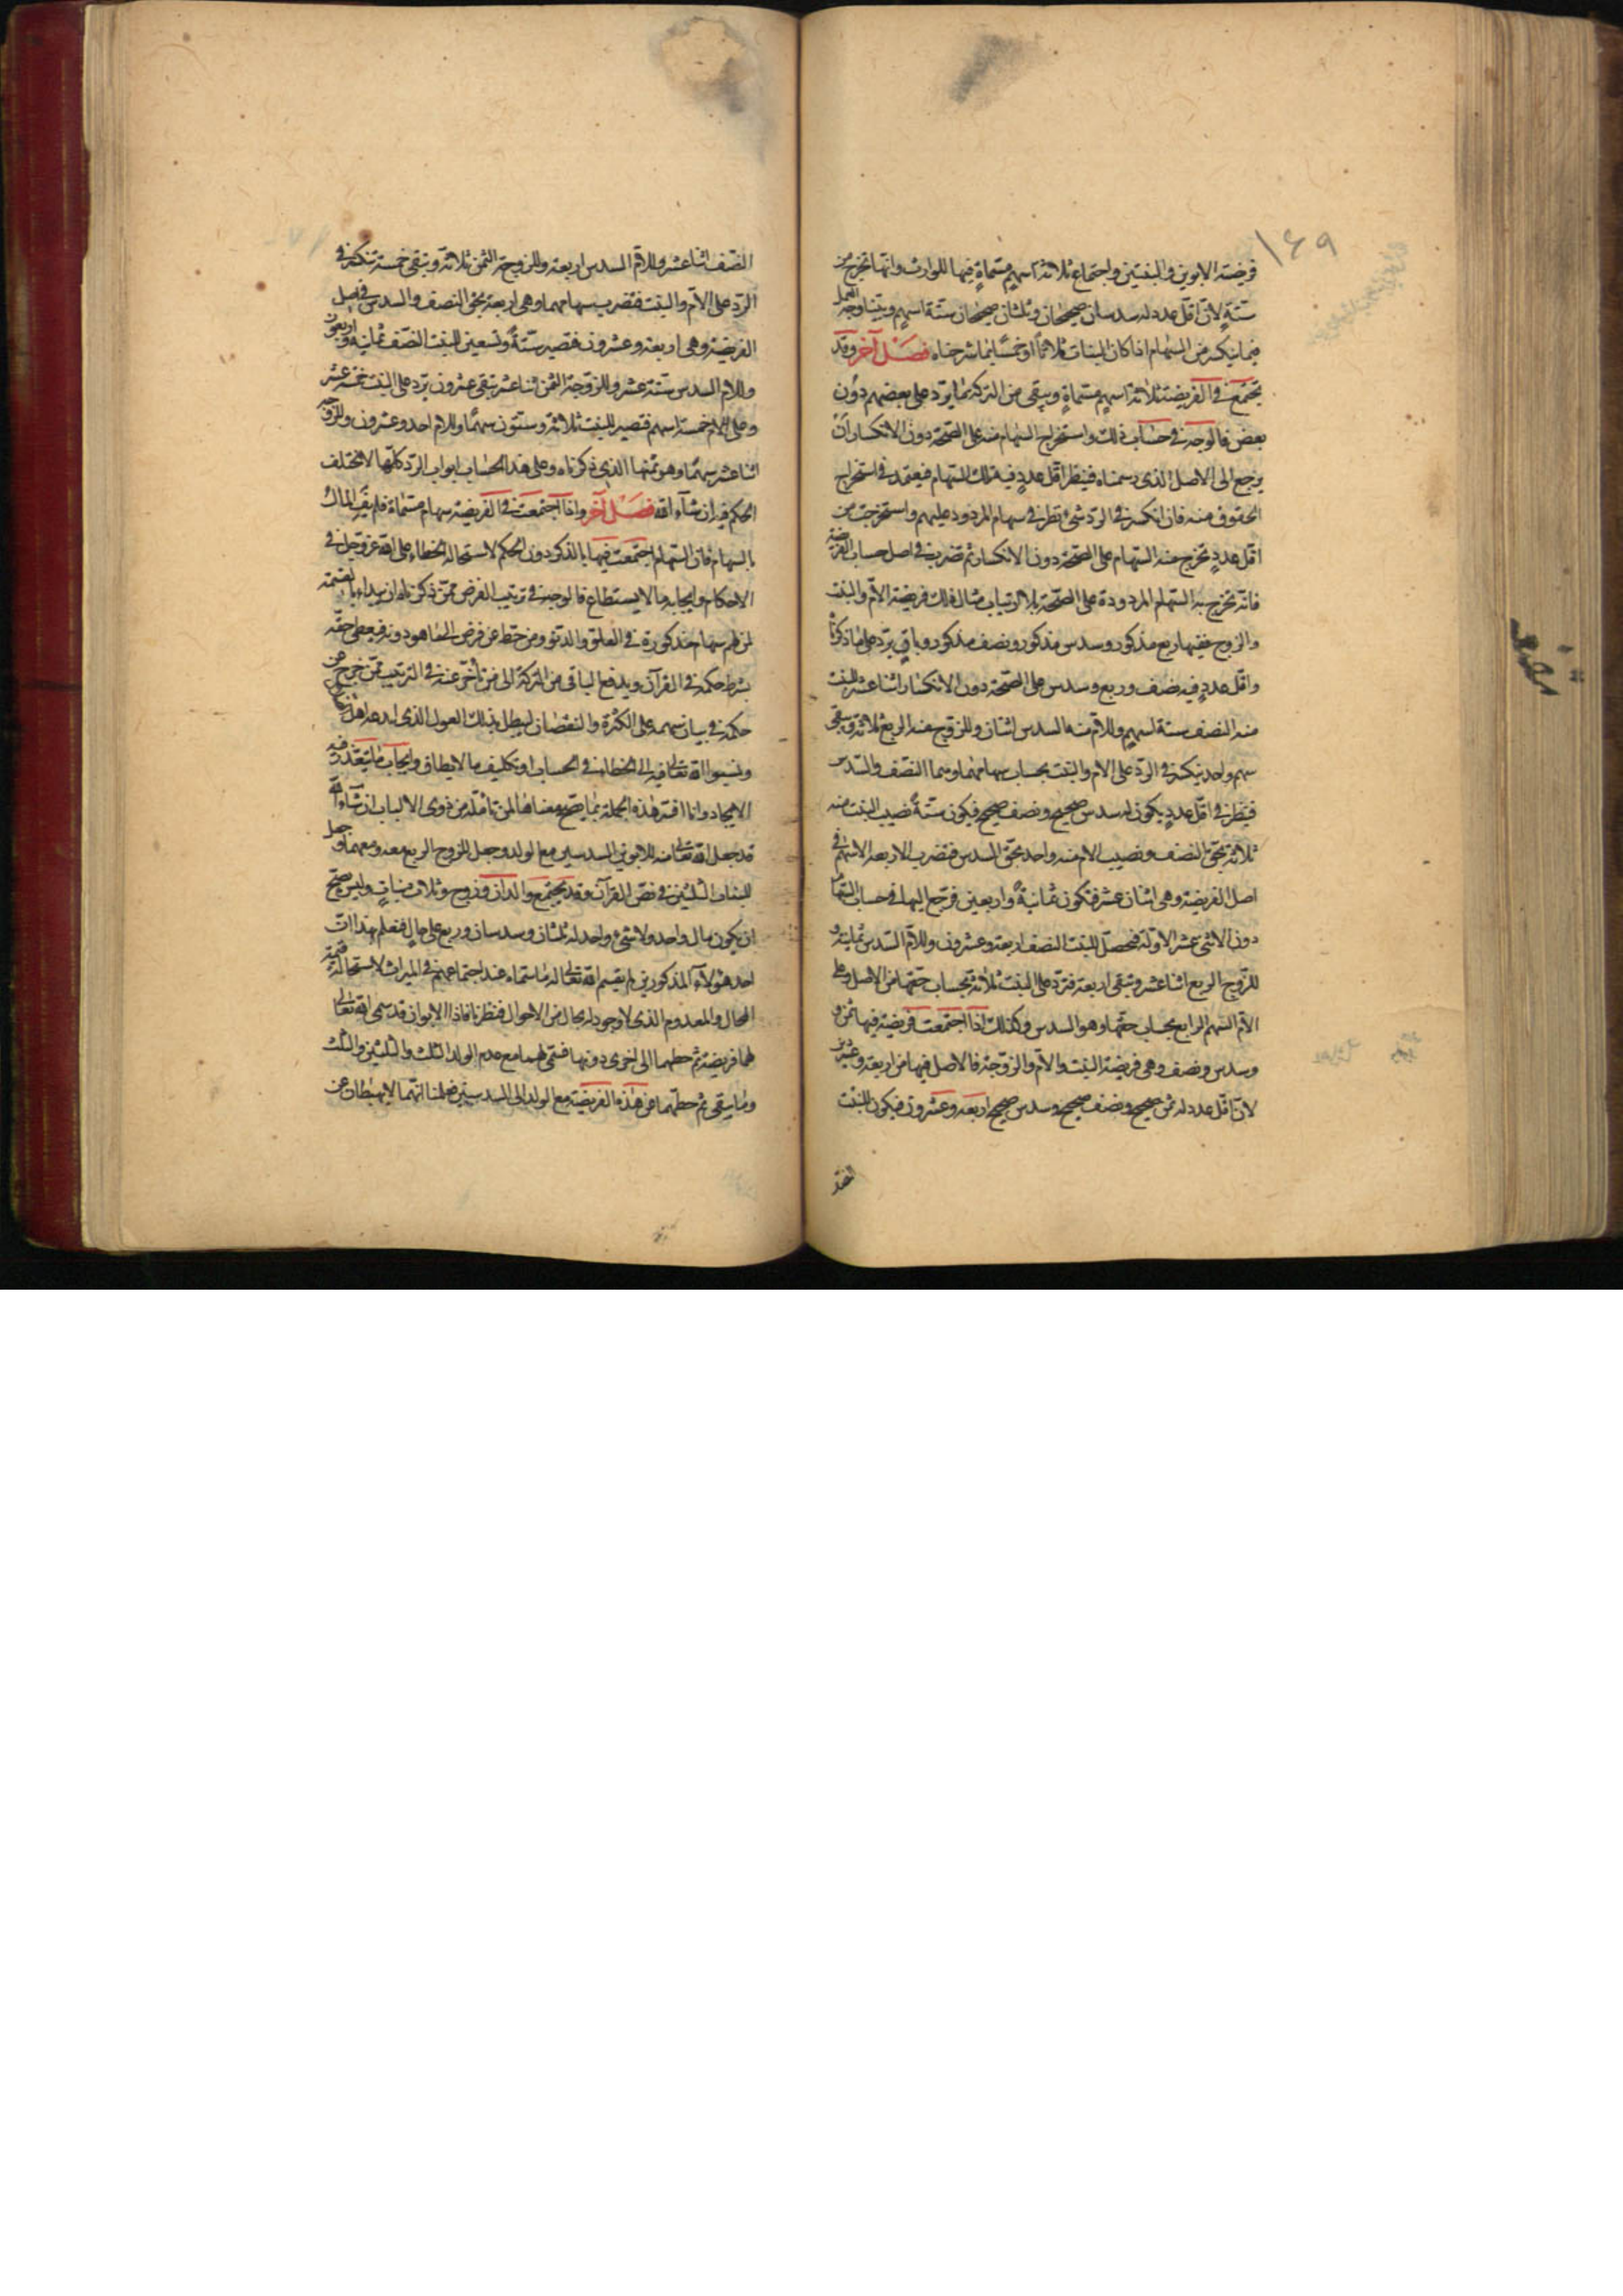 ١٤٩
فريضة الابوين والبنتين واجتماع ثلاثة اسهم مسماة فيها للوارث وانها تخرج من
ستة لان اقل عدد له سدسان صحيحان وثلثان صحيحان ستة اسهم وبينا وجه العمل
فيما ينكسر من السهام اذا كان البنات ثلاثا او خمسا بما شرحناه فصل آخر وقد
تجتمع في الفريضة ثلاثة اسهم مسماة ويبقى من التركة ما يرد على بعضهم دون
بعض فالوجه في حساب ذلك واستخراج السهام منه على الصحة دون الانكسار ان
يرجع الى الاصل الذى رسمناه فينظر اقل عدد فيه تلك السهام فيعتمد في استخراج
الحقوق منه فان انكسر في الرد شئ نظر في سهام المردود عليهم واستخرجت من
اقل عدد تخرج منه السهام على الصحة دون الانكسار ثم تضرب في اصل حساب الفريضة
فانه تخرج به السهام المردودة على الصحة بلا ارتياب مثال ذلك فريضة الام والبنت
والزوج ففيها ربع مذكور وسدس مذكور ونصف مذكور وباق يرد على ما ذكرنا
واقل عدد فيه نصف وربع وسدس على الصحة دون الانكسار اثنا عشر للبنت
منه النصف ستة اسهم وللام منه السدس اثنان وللزوج منه الربع ثلاثة ويبقى
سهم واحد ينكسر في الرد على الام والبنت بحساب سهامهما وهما النصف والسدس
فينظر في اقل عدد يكون له سدس صحيح ونصف صحيح فيكون ستة نصيب البنت منه
ثلاثة بحق النصف ونصيب الام منه واحد بحق السدس فتضرب الاربعة الاسهم في
اصل الفريضة وهى اثنان عشر فتكون ثمانية واربعين فرجع اليها في حساب السهام
دون الاثنى عشر الاولة فحصل للبنت النصف اربعة وعشرون وللام السدس ثمانية و
للزوج الربع اثنا عشر وتبقى اربعة فترد على البنت ثلاثة بحساب حقها من الاصل وعلى
الام السهم الرابع بحساب حقها وهو السدس وكذلك اذا اجتمعت فريضة فيها ثمن و
وسدس ونصف وهى فريضة البنت والام والزوجة فالاصل فيها من اربعة وعشرين
لان اقل عدد له ثمن صحيح ونصف صحيح وسدس صحيح اربعة وعشرون فيكون للبنت
النصف
النصف اثنا عشر وللام السدس اربعة وللزوجة الثمن ثلاثة وتبقى خمسة تنكسر في
الرد على الام والبنت فتضرب سهامهما وهى اربعة بحق النصف والسدس في اصل
الفريضة وهى اربعة وعشرون فتصير ستة وتسعين للبنت النصف ثمانية واربعون
وللام السدس ستة عشر وللزوجة الثمن اثنا عشر تبقى عشرون يرد على البنت خمسة عشر
وعلى الام خمسة اسهم فتصير للبنت ثلاثة وستون سهما وللام احد وعشرون وللزوجة
اثنا عشر سهما وهو ثمنها الذى ذكرناه وعلى هذا الحساب ابواب الرد كلها لا يختلف
الحكم فيه ان شاء الله فصل آخر واذا اجتمعت في الفريضة سهام مسماة فلم يف المال
بالسهام فان السهام اجتمعت فيها بالذكر دون الحكم لاستحالة الخطاء على الله عز وجل في
الاحكام وايجابه ما لا يستطاع فالوجه في ترتيب الفرض ممن ذكرناه ان يبداء بالقسمة
لمن لهم سهام مذكورة في العلو والدنو ومن حط عن فرض الى ما هو دونه فيعطى حقه
بشرط حكمه في القرآن ويدفع الباقى من التركة الى من تأخر عنه في الترتيب ممن خرج عن
حكمه في بيان سهمه على الكثرة والنقصان ليبطل بذلك العول الذى ابدعه اهل
ونسبوا الله تعالى فيه الى الخطاء في الحساب او تكليف ما لا يطاق وايجاب ما يتعذر فيه
الايجاد وانا افسر هذه الجملة بما يتضح معناها لمن تأمله من ذوى الالباب ان شاء الله
قد جعل الله تعالى منه للابوين السدسين مع الولد وجعل للزوج الربع معه ومعهما وجعل
للبنات الثلثين في نص القرآن وقد يجتمع والدان وزوج وثلاث بنات وليس يصح
ان يكون مال واحد ولا شئ واحد له ثلثان وسدسان وربع على حال فنعلم بهذا ان
احد هؤلاء المذكورين لم يقسم الله تعالى له ما سماه عند اجتماعهم في الميراث لاستحالة قسمة
المحال والمعدوم الذى لا وجود له بحال من الاحوال فنظرنا فاذا الابوان قد سمى الله تعالى
لهما فريضة ثم حطهما الى اخرى دونها فسمى لهما مع عدم الولد الثلث والثلثين والثلث
وما يبقى ثم حطهما عن هذه الفريضة مع الولد الى السدسين فعلمنا انهما لا يهبطان عن